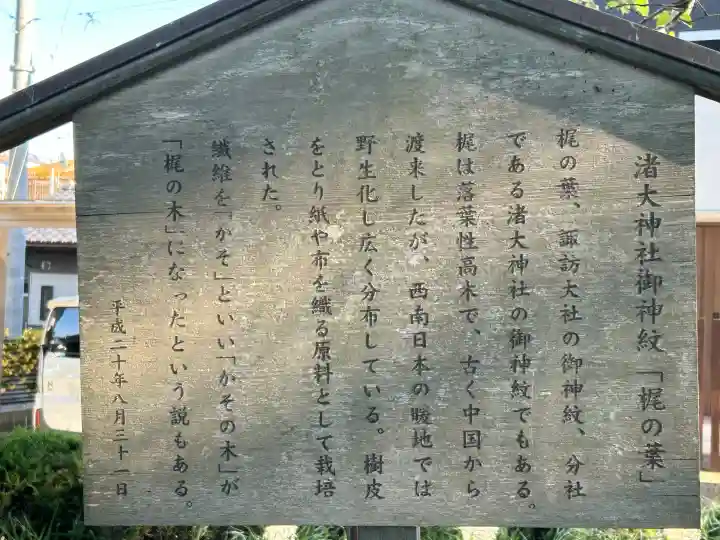 渚大神社御神紋「梶の葉」
梶の葉、諏訪大社の御神紋、分社
である渚大神社の御神紋でもある。
梶は落葉性高木で、古く中国から
渡来したが、西南日本の暖地では
野生化し広く分布している。樹皮
をとり紙や布を織る原料として栽培
された。
繊維を「かそ」といい「かその木」が
「梶の木」になったという説もある。
平成二十年八月三十一日